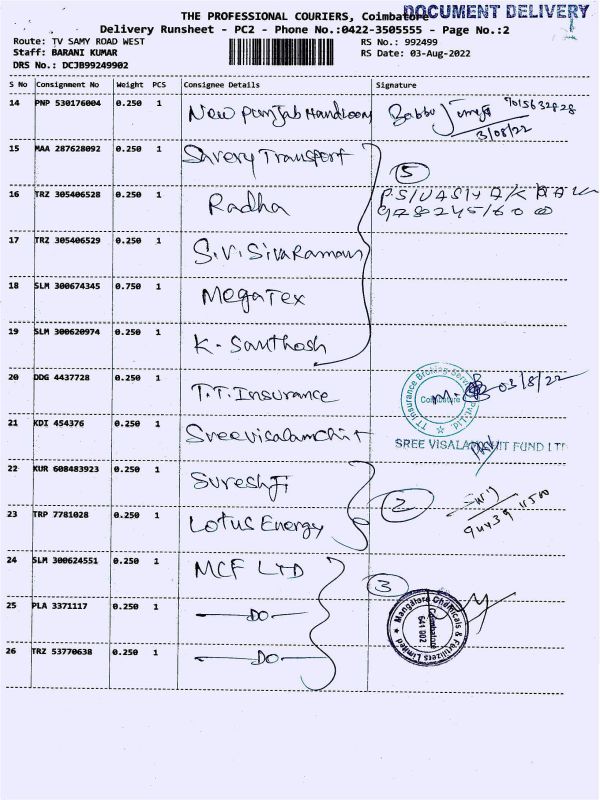 THE PROFESSIONAL COURIERS, Coimbatore
DOCUMENT DELIVERY
Delivery Runsheet - PC2 - Phone No.:0422-3505555 - Page No.:2
Route: TV SAMY ROAD WEST
RS No.: 992499
Staff: BARANI KUMAR
RS Date: 03-Aug-2022
DRS No.: DCJB99249902
S No Consignment No Weight PCS Consignee Details Signature
14 PNP 530176004 0.250 1 New Punjab Handloom Babbu 7015632828
3/08/22
15 MAA 287628092 0.250 1 Savery Transport
5
16 TRZ 305406528 0.250 1 Radha
17 TRZ 305406529 0.250 1 S.V. Sivaraman
18 SLM 300674345 0.750 1 Megatex
19 SLM 300620974 0.250 1 K. Santhosh
20 DDG 4437728 0.250 1 T.T. Insurance 03/8/22
TT Insurance Broking Services Pvt. Ltd.
Coimbatore
21 KDI 454376 0.250 1 Sreevisalamchit
SREE VISALAM CHIT FUND LTD
22 KUR 608483923 0.250 1 Sureshji
2
23 TRP 7781028 0.250 1 Lotus Energy
24 SLM 300624551 0.250 1 MCF LTD
3
25 PLA 3371117 0.250 1 DO
Mangalore Chemicals & Fertilizers Limited
Coimbatore
641 002
26 TRZ 53770638 0.250 1 DO